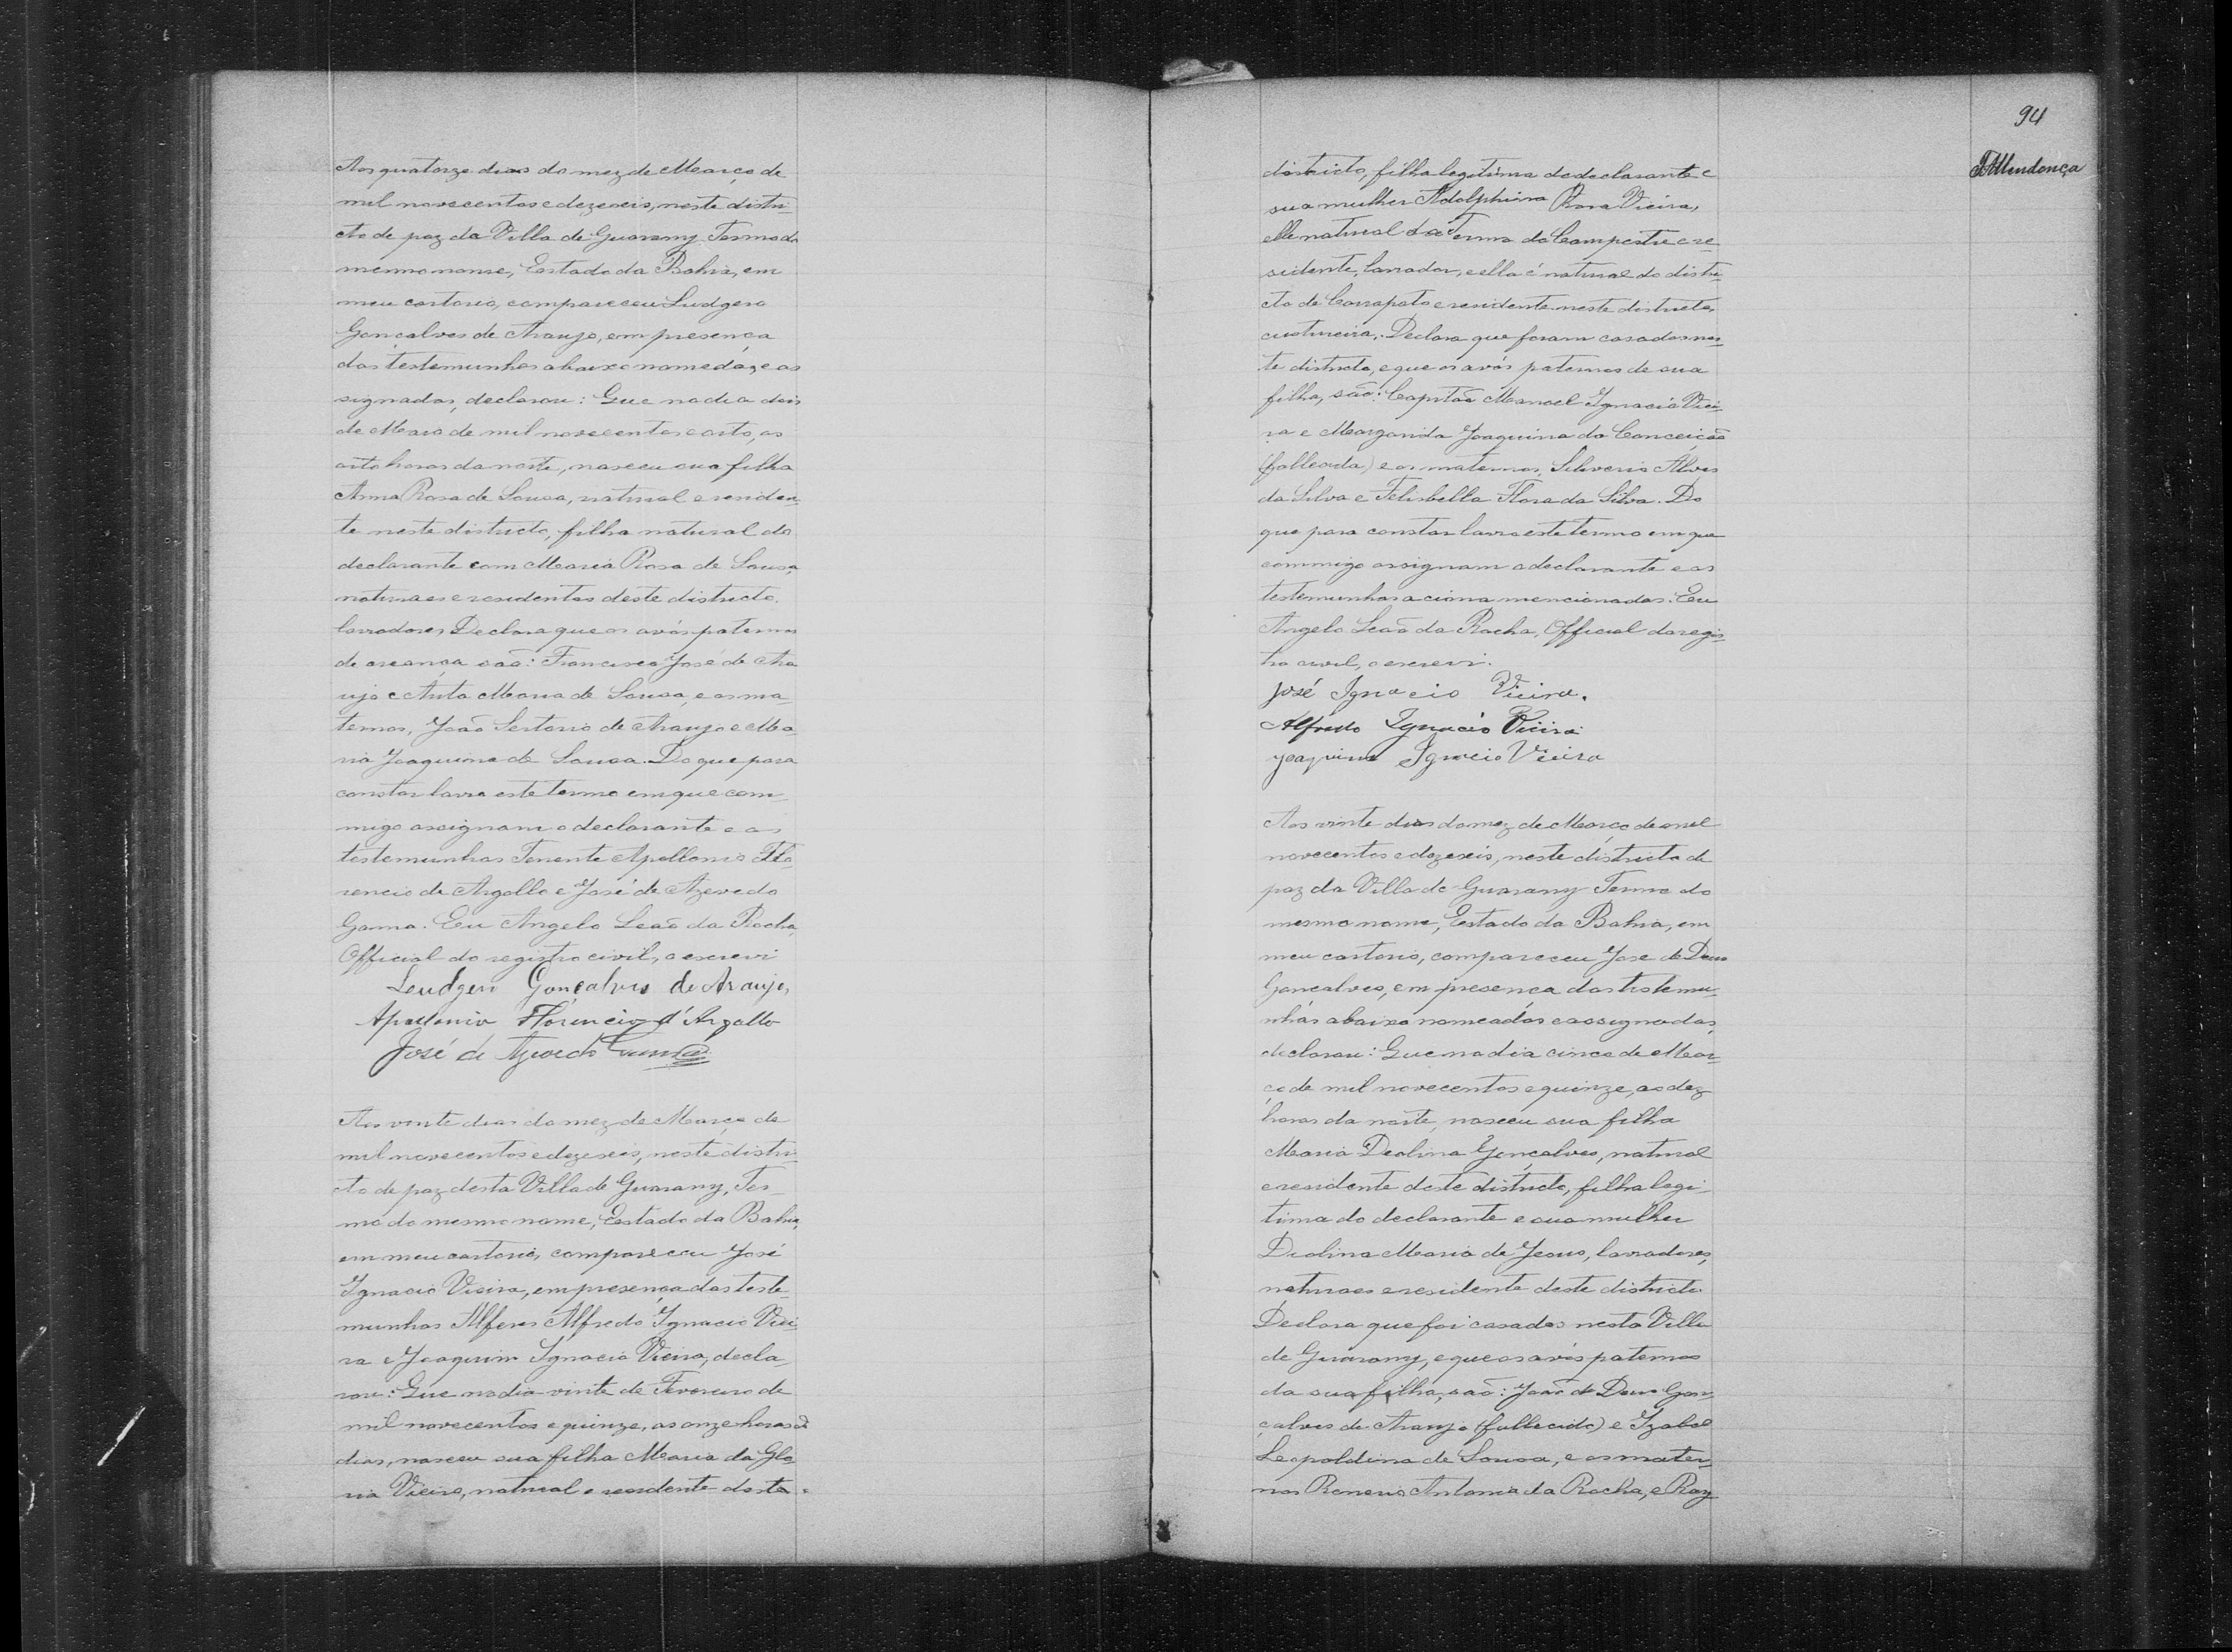 Aos quatorze dias do mez de Março de
mil novecentos e dezeseis, neste distri-
cto de paz da Villa de Guarany Termo do
mesmo nome, Estado da Bahia, em
meu cartorio, compareceu Ludgero
Gonçalves de Araujo, em presença
das testemunhas abaixo nomeadas, e as
signadas, declarou: Que no dia dois
de Maio de mil novecentos e oito, as
oito horas da noite, nasceu sua filha
Anna Rosa de Sousa, natural e residen-
te neste districto, filha natural do
declarante com Maria Rosa de Sousa,
naturaes e residentes deste districto.
lavradores, Declara que os avós paternos
de creança são: Francisco José de Ara
ujo e Anta Maria de Sousa, e os ma-
ternos, João Sertorio de Araujo e Ma-
ria Joaquina de Sousa. Do que para
constar lavro este termo em que com-
migo assignam o declarante e as
testemunhas Tenente Apollonio Flo-
rencio de Argollo e José de Azevedo
Gama. Eu Angelo Leão da Rocha,
Official do registro civil, o escrevi
Leudgero Gonçalves de Araujo,
Apollonio Florencio d'Argollo
José de Azevedo Gama
Aos vinte dias do mez de Março de
mil novecentos e dezeseis, neste distri-
cto de paz desta Villa de Guarany, Ter-
mo do mesmo nome, Estado da Bahia,
em meu cartorio, compareceu José
Ignacio Vieira, em presença das teste-
munhas Alferes Alfredo Ignacio Viei-
ra Joaquim Ignacio Vieira, decla-
rou: Que no dia vinte de Fevereiro de
mil novecentos e quinze, as onze horas do
dia, nasceu sua filha Maria da Glo-
ria Vieira, natural e residente deste
94
districto, filha legitima do declarante e
sua mulher Adolphina Rosa Vieira,
elle natural do Termo do Campestre e re-
sidente, lavrador, e ella é natural do distri-
cto de Carrapato e residente neste districto,
custureira. Declara que foram casados nes-
te districto, e que os avós paternos de sua
filha, são: Capitão Manoel Ignacio Viei-
ra e Margarida Joaquina da Conceição
(fallecida) e os maternos, Silverio Alves
da Silva e Felisbella Flora da Silva. Do
que para constar lavro este termo em que
commigo assignam o declarante e as
testemunhas acima mencionadas. Eu
Angelo Leão da Rocha, Official do regis-
tro civil, o escrevi.
José Ignacio Vieira.
Alfredo Ignacio Vieira
Joaquim Ignacio Vieira
Aos vinte dias do mez de Março de mil
novecentos e dezeseis, neste districto de
paz da Villa de Guarany Termo do
mesmo nome, Estado da Bahia, em
meu cartorio, compareceu José de Deus
Gonçalves, em presença das testemu-
nhas abaixo nomeadas e assignadas,
declarou: Que no dia cinco de Mar-
ço de mil novecentos e quinze, as dez
horas da noite, nasceu sua filha
Maria Deolina Gonçalves, natural
e residente deste districto, filha legi-
tima do declarante e sua mulher
Deolina Maria de Jesus, lavradores,
naturaes e residente deste districto
Declara que foi casados nesta Villa
de Guarany, e que os avós paternos
da sua filha, são: João de Deus Gon-
çalves de Araujo (fallecido) e Izabel
Leopoldina de Sousa, e os mater-
nos Antonio da Rocha, e Ray
Mendonça